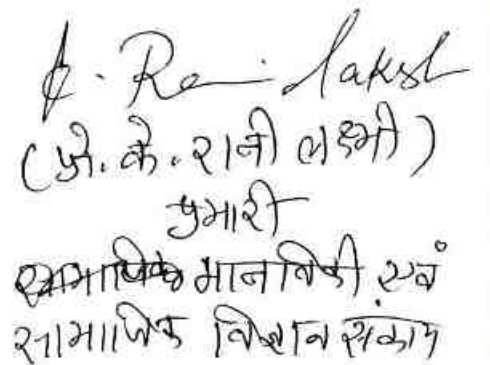 K. Rani Lakshmi
(प्रो. के. रानी लक्ष्मी)
प्रभारी
मानविकी एवं
सामाजिक विज्ञान संकाय